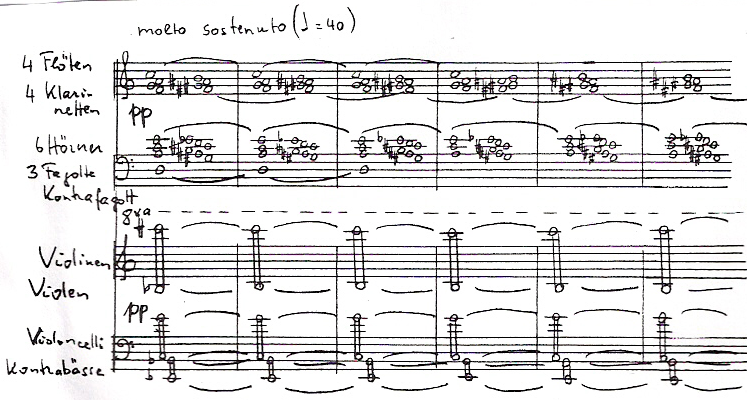 molto sostenuto (♩=40)
4 Flöten
4 Klari-
netten
pp
6 Hörner
3 Fagotte
Kontrafagott
8va
Violinen
Violen
pp
Violoncelli
Kontrabässe